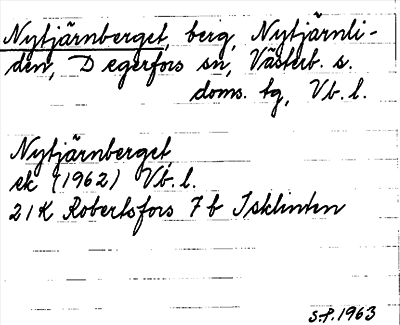 Nytjärnberget, berg, Nytjärnli-
den, Degerfors sn, Västerb. s.
doms. tg, Vb. l.
Nytjärnberget,
ek (1962) Vb. l.
21K Robertsfors 7b Isklinten
S.P. 1963